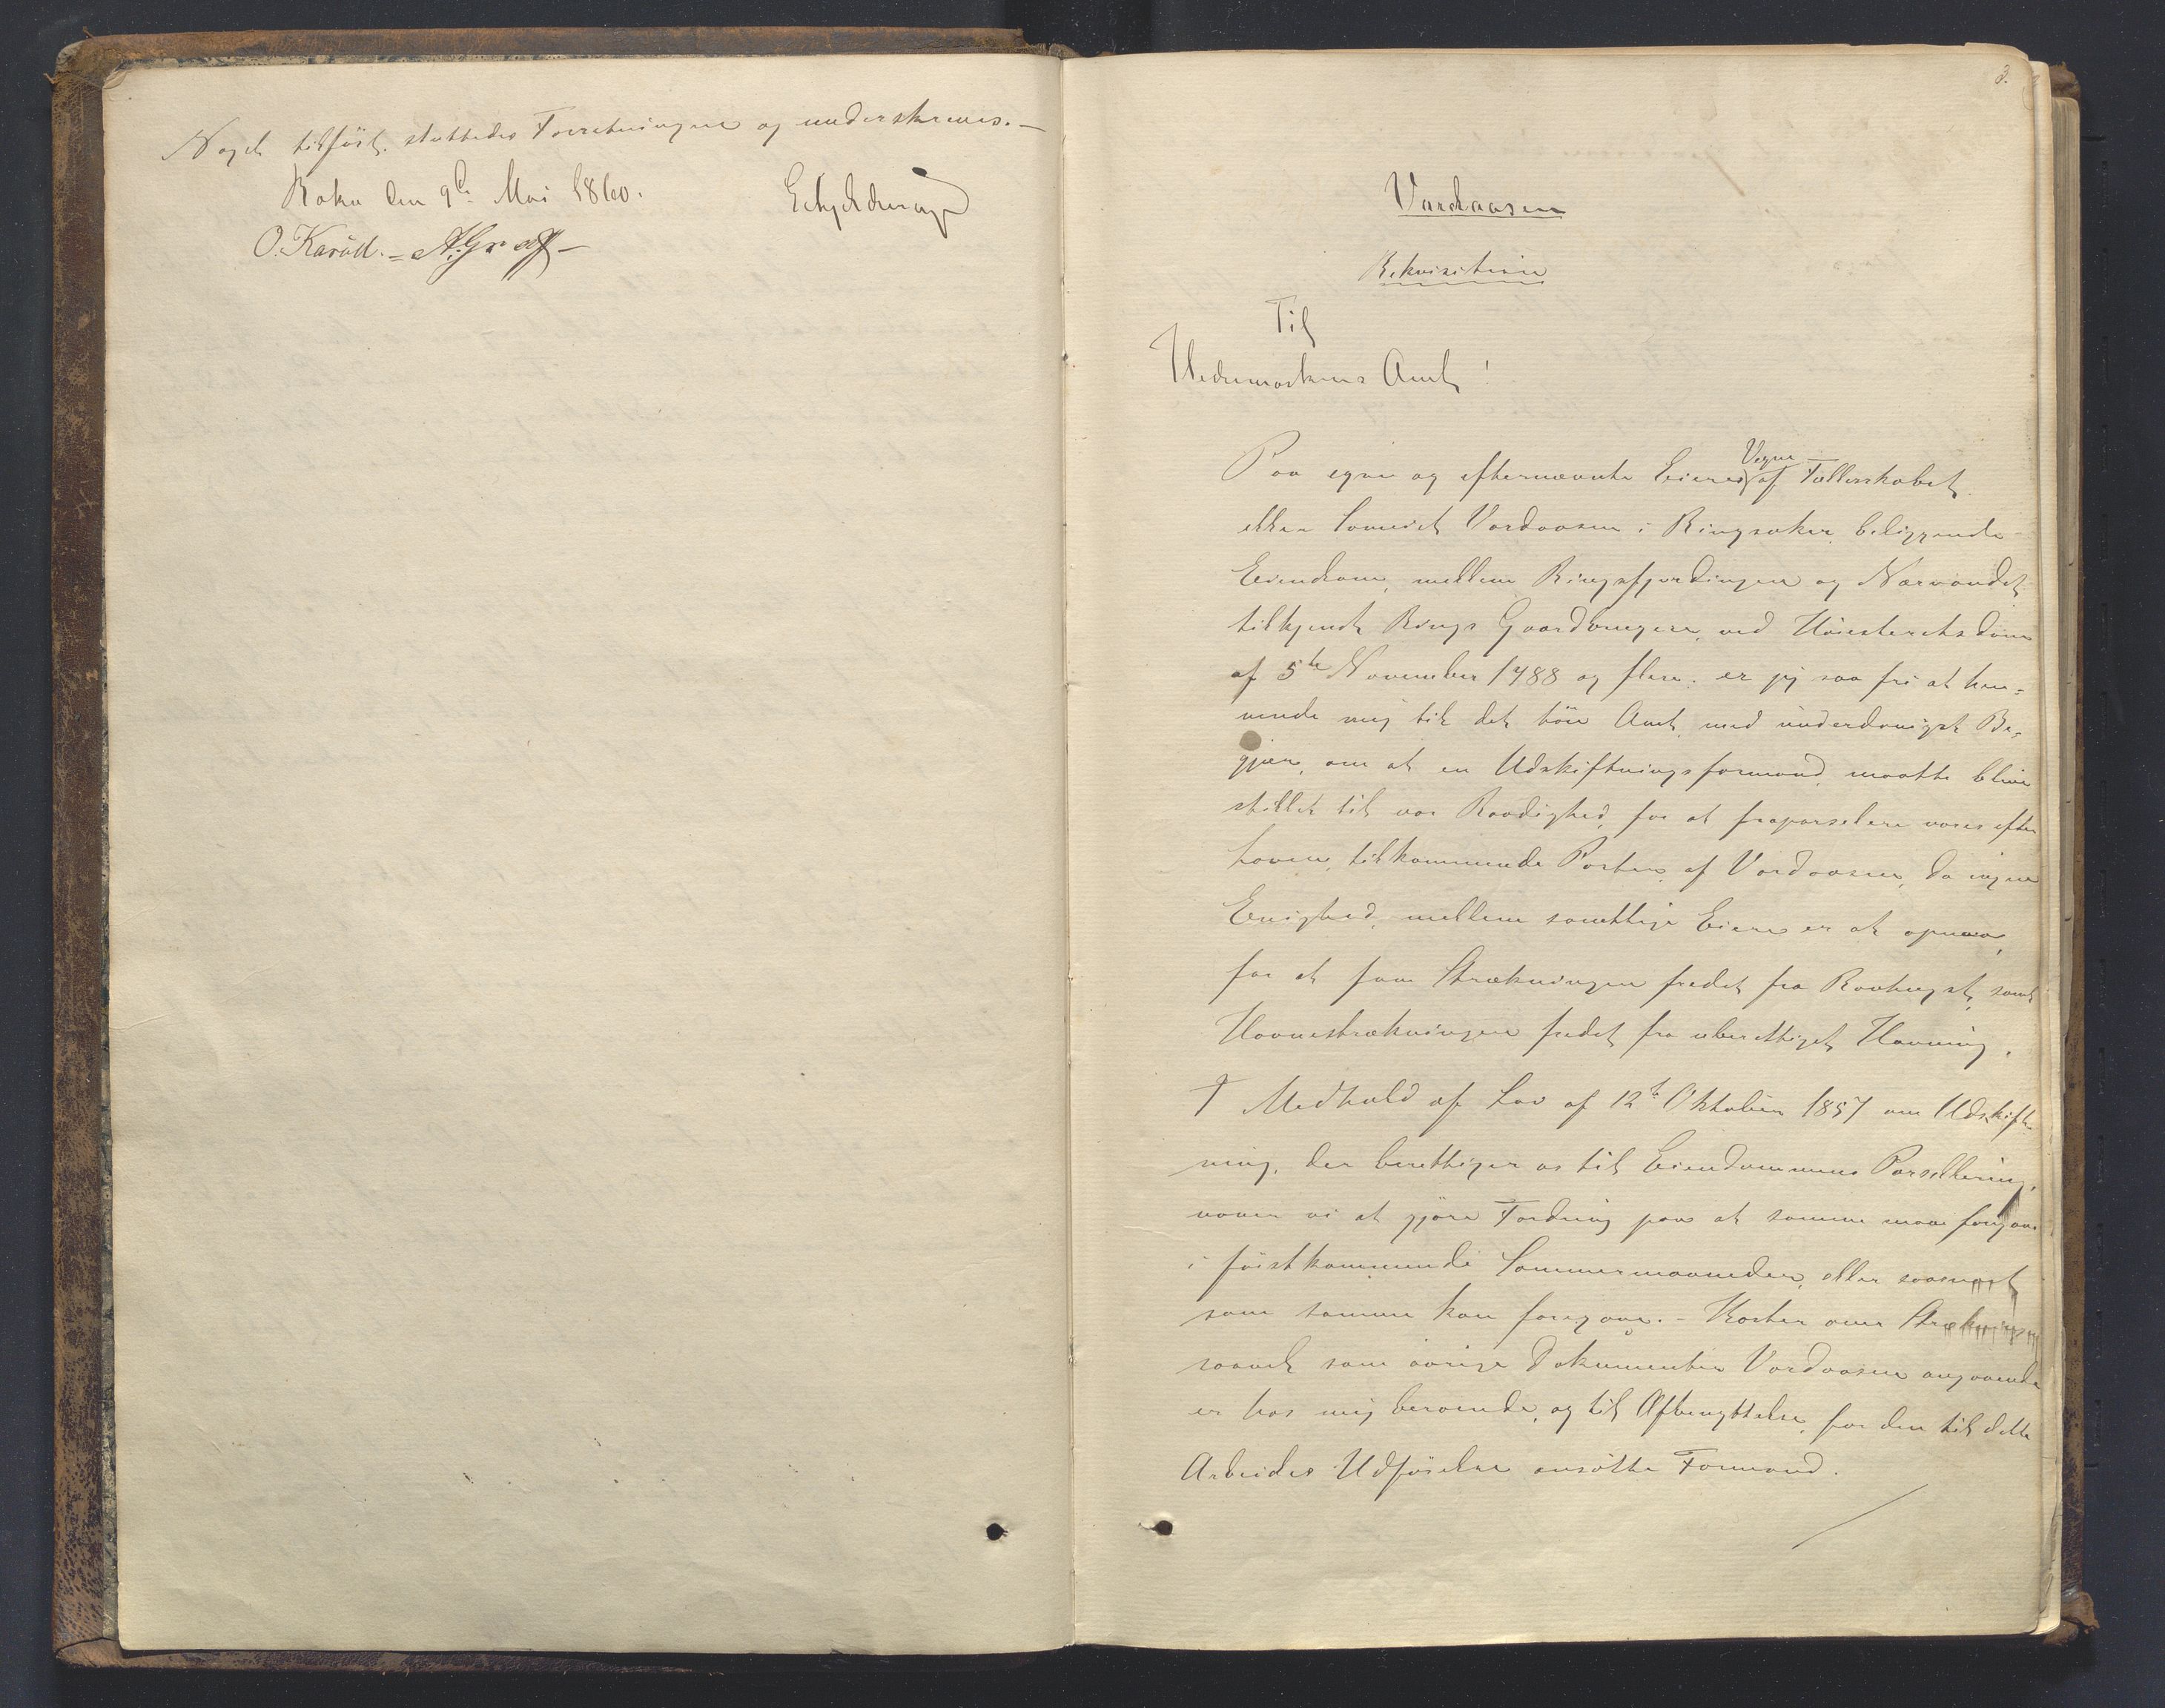 Noget tilført. sluttedes Forretningen og underskreves. —
Roko den 9de Mai 1860.
O. Karud. = A. Graff —
3.
Vardaasen
Rekvisition
Til
Hedemarkens Amt!
Paa egne og efternævnte Eieres Vegne af Fællesskabet
eller Sameiet Vardaasen i Ringsaker beliggende
Eiendom, mellem Ringsfjerdingen og Næravandet
tilkjendt Rings Gaardbrugere, ved Høiesteretsdom
af 5te November 1788 og flere. er jeg saa fri at hen=
vende mig til det høie Amt, med underdanigst Be=
gjær, om at en Udskiftningsformand, maatte blive
stillet til vor Raadighed, for at fraparselere vores efter
Loven, tilkommende Parter, af Vardaasen, da ingen
Enighed, mellem samtlige Eiere er at opnaa,
for at faae Strækningen fredet fra Rovhugst, samt
Havnestrækningen fredet fra uberettiget Havning.
I Medhold af Lov af 12te Oktober 1857 om Udskift
ning, der berettiger os til Eiendommens Parsellering,
vover vi at gjøre Fordring paa at samme maa foregaae
i førstkommende Sommermaaneder, eller saasnart
som samme kan foregaae. - Karter over Strækningen
saavel som øvrige Dokumenter Vardaasen angaaende
er hos mig beroende, og til Afbenyttelse, for den til dette
Arbeides Udførelse ansatte Formand.